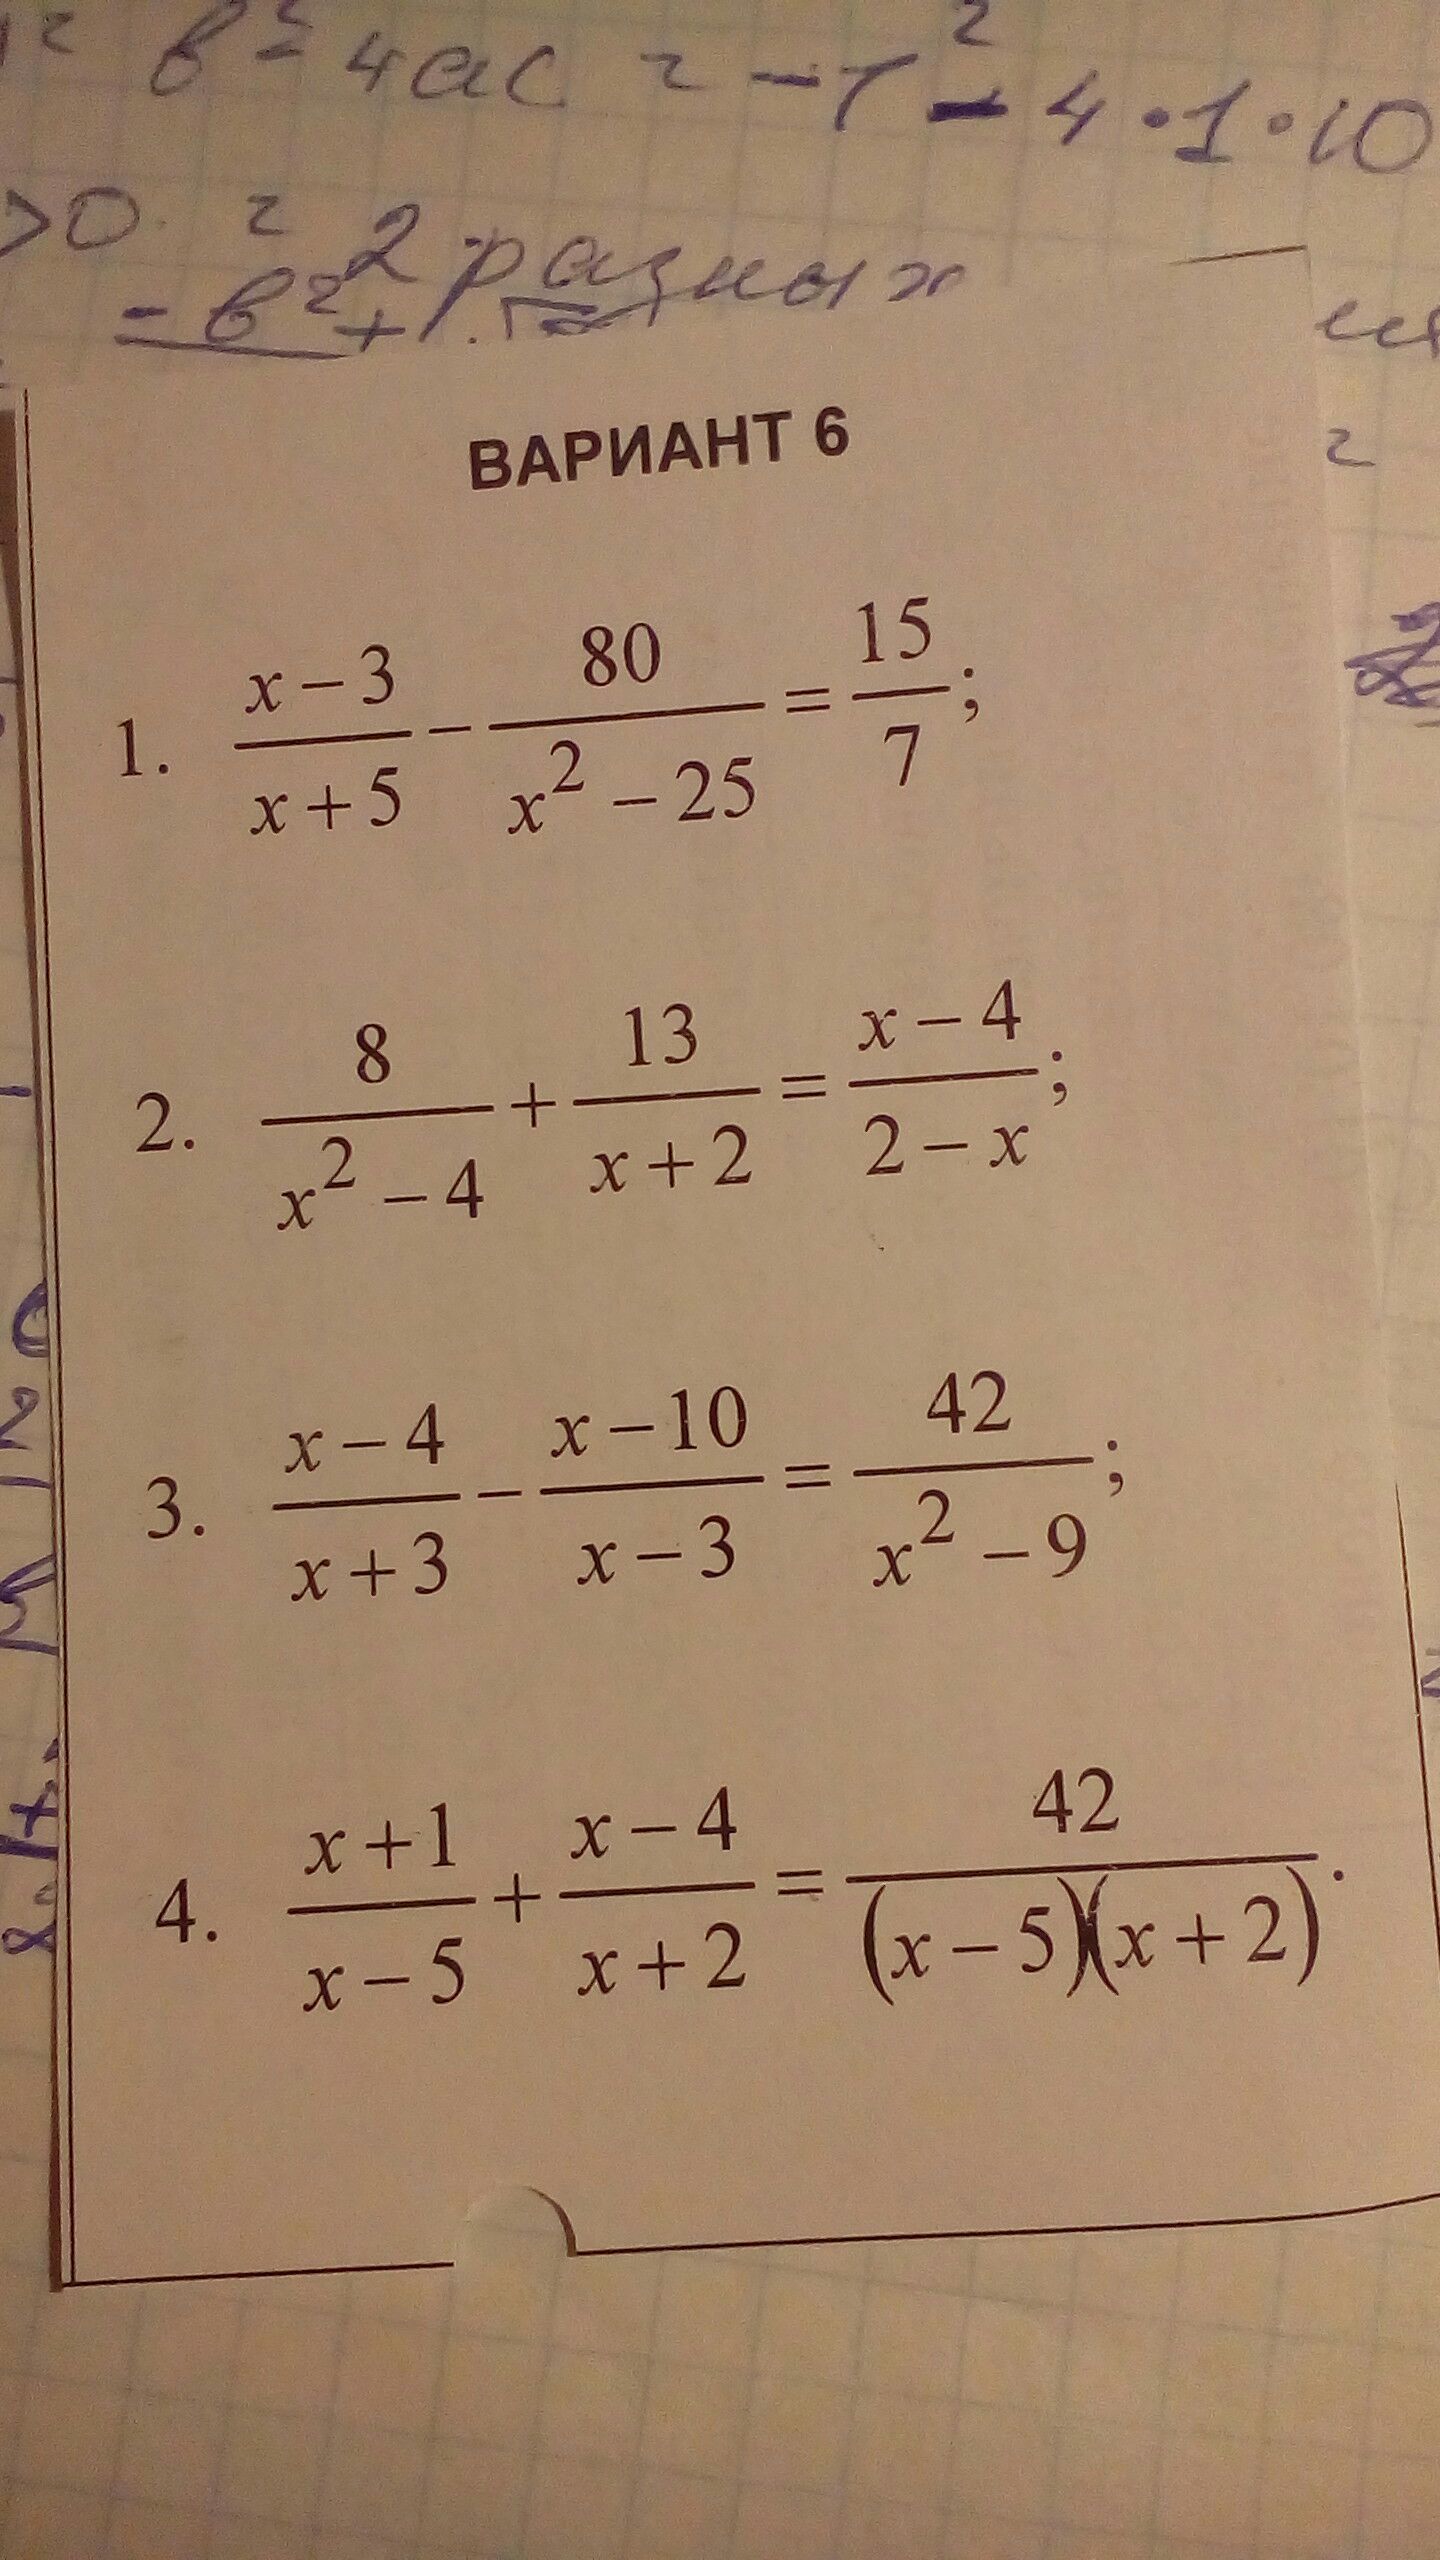 в² - 4ac = -7² - 4 · 1 · 10
>0 = 2 разных
ВАРИАНТ 6
1. (x – 3)/(x + 5) – 80/(x² – 25) = 15/7;
2. 8/(x² – 4) + 13/(x + 2) = (x – 4)/(2 – x);
3. (x – 4)/(x + 3) – (x – 10)/(x – 3) = 42/(x² – 9);
4. (x + 1)/(x – 5) + (x – 4)/(x + 2) = 42/((x – 5)(x + 2)).